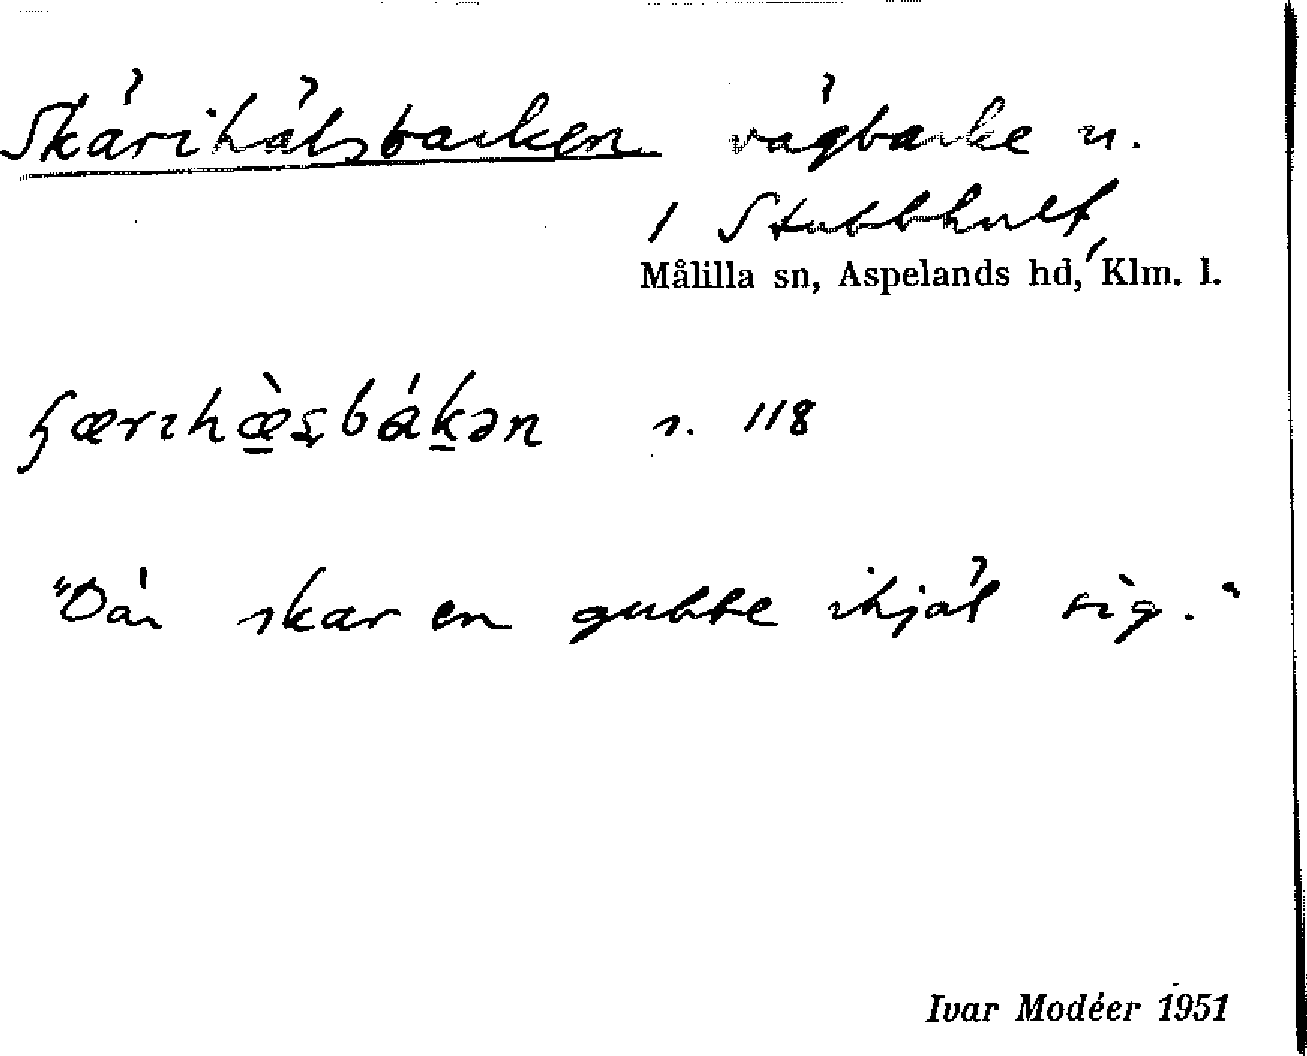 Skärihälsbacken vägbacke n.
i Stubbhult,
Målilla sn, Aspelands hd, Klm. l.
s. 118
"Där skar en gubbe ihjäl sig."
Ivar Modéer 1951